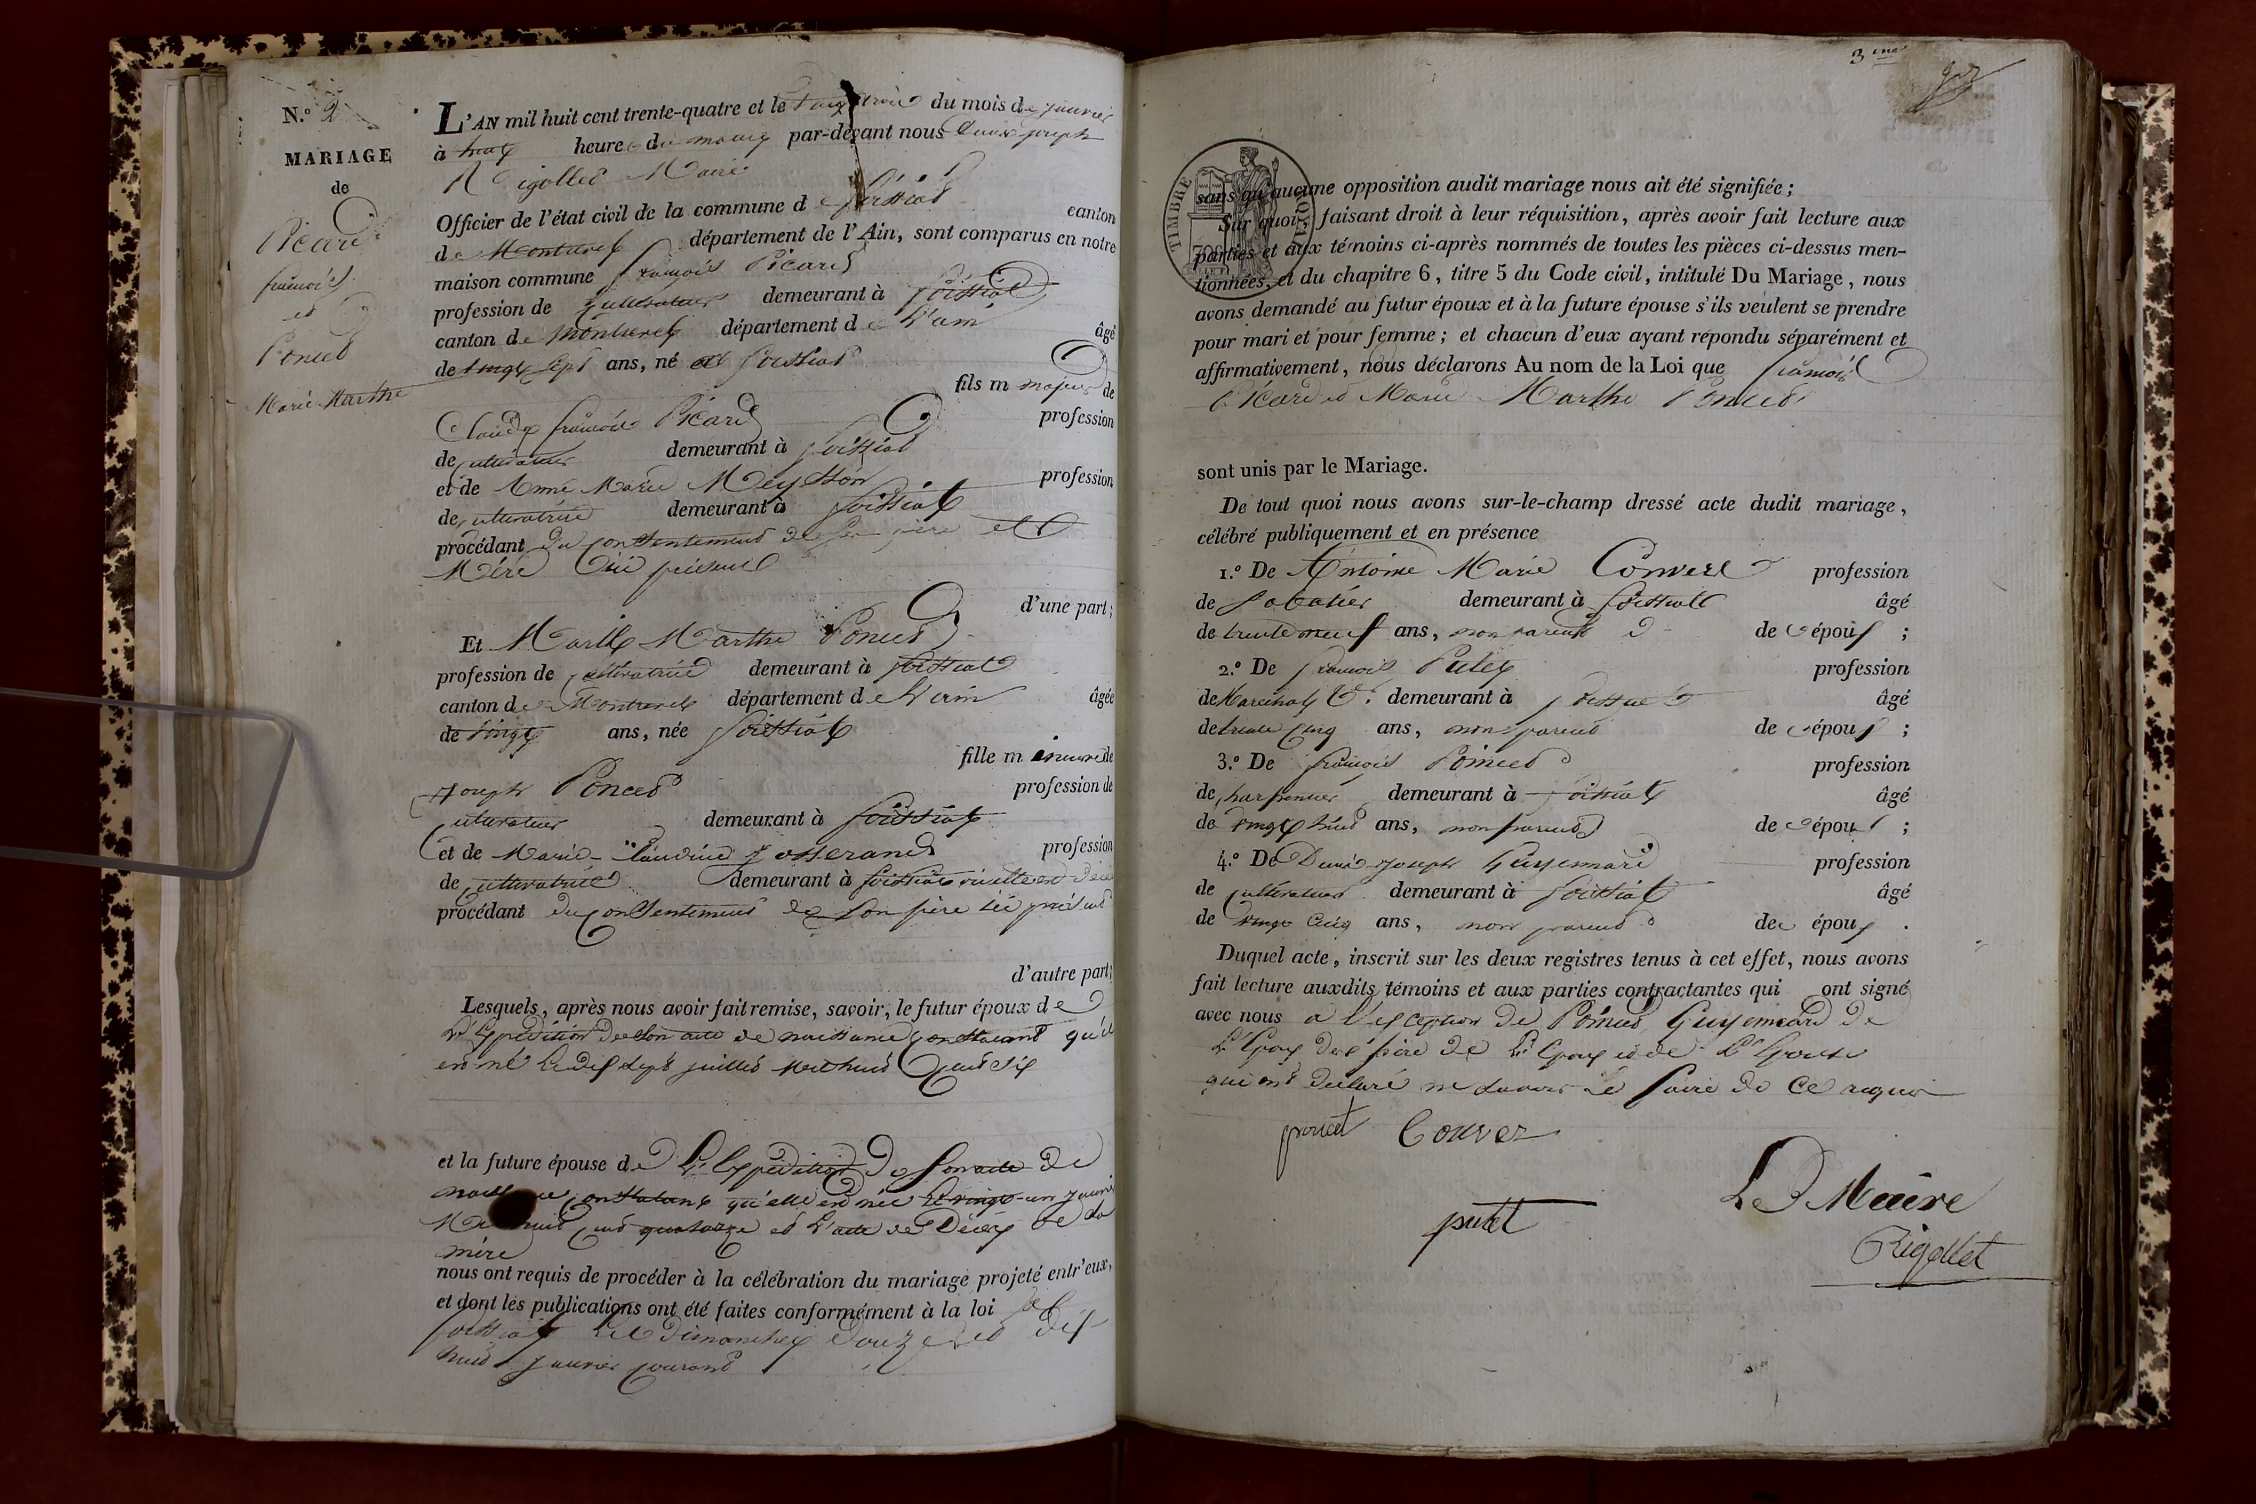 N.º 2
MARIAGE
de
Picard
françois
et
Poncet
Marie Marthe
L'AN mil huit cent trente-quatre et le vingt trois du mois de janvier
à heures du matin par-devant nous joseph
Rigollet Maire
Officier de l'état civil de la commune de foissiat canton
de Montrevel département de l'Ain, sont comparus en notre
maison commune françois Picard
profession de cultivateur demeurant à foissiat
canton de Montrevel département de L'ain âgé
de vingt sept ans, né à foissiat
fils majeur de
Claude françois Picard profession
de cultivateur demeurant à foissiat
et de Anne Marie Meysson profession
de cultivatrice demeurant à foissiat
procédant du consentement de son père et
Mère ici présent
d'une part;
Et Marie Marthe Poncet
profession de cultivatrice demeurant à foissiat
canton de Montrevel département de L'ain âgée
de vingt ans, née foissiat
fille mineure de
joseph Poncet profession de
cultivateur demeurant à foissiat
et de Marie Claudine josserand profession
de cultivatrice demeurant à foissiat où elle est
procédant du consentement de son père ici présent
d'autre part;
Lesquels, après nous avoir fait remise, savoir, le futur époux de
L'Expédition de son acte de naissance constatant qu'il
est né le dix sept juillet Mil huit cent six
et la future épouse de L'Expédition de son acte de
constatant qu'elle est née le vingt un janvier
cent quatorze et L'acte de Décès de sa
mère
nous ont requis de procéder à la célébration du mariage projeté entr'eux,
et dont les publications ont été faites conformément à la loi
foissiat Les Dimanches Douze et dix
huit janvier courant
3 me
TIMBRE ROYAL
sans qu'aucune opposition audit mariage nous ait été signifiée;
Sur quoi, faisant droit à leur réquisition, après avoir fait lecture aux
parties et aux témoins ci-après nommés de toutes les pièces ci-dessus men-
tionnées, et du chapitre 6, titre 5 du Code civil, intitulé Du Mariage, nous
avons demandé au futur époux et à la future épouse s'ils veulent se prendre
pour mari et pour femme; et chacun d'eux ayant répondu séparément et
affirmativement, nous déclarons Au nom de la Loi que françois
Picard et Marie Marthe Poncet
sont unis par le Mariage.
De tout quoi nous avons sur-le-champ dressé acte dudit mariage,
célébré publiquement et en présence
1.º De Antoine Marie Convert profession
de sabotier demeurant à foissiat âgé
de trente neuf ans, non parent des époux;
2.º De françois Putet profession
de Marechal demeurant à foissiat âgé
de trente cinq ans, non parent des époux;
3.º De françois Poncet profession
de charpentier demeurant à foissiat âgé
de vingt huit ans, non parent des époux;
4.º De Denis joseph Guyennard profession
de cultivateur demeurant à foissiat âgé
de vingt cinq ans, non parent des époux.
Duquel acte, inscrit sur les deux registres tenus à cet effet, nous avons
fait lecture auxdits témoins et aux parties contractantes qui ont signé
avec nous à l'exception de Poncet Guyennard de
L'Epoux père de L'Epoux et de L'Epouse
qui ont déclaré ne savoir le faire de ce requis
poncet Convez
putet
Le Maire
Rigollet